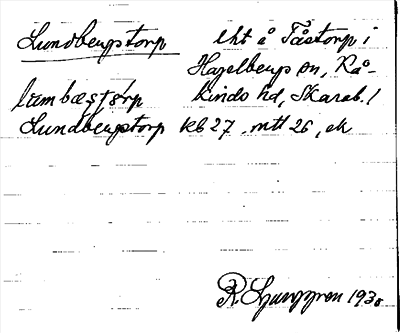 Lundbergstorp lht å Fåstorp i
Hagelberg sn, Kå-
kinds hd, Skarab. l
Lundbergstorp kb 27, mtl 26, ek
R. Ljunggren 1930